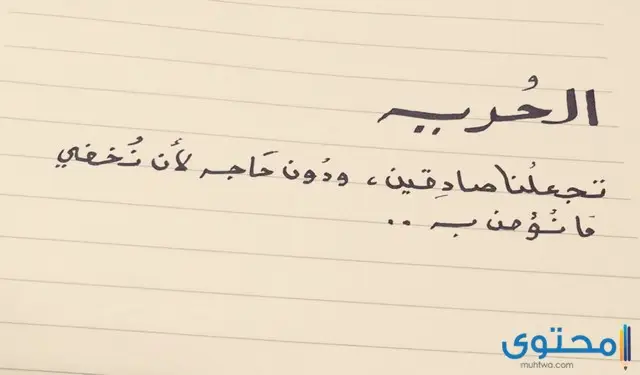 الحُريه
تجعلُنا صادِقين، ودُون حَاجه لأن نُخفي
مَا نُؤمن به ..
محتوى
muhtwa.com